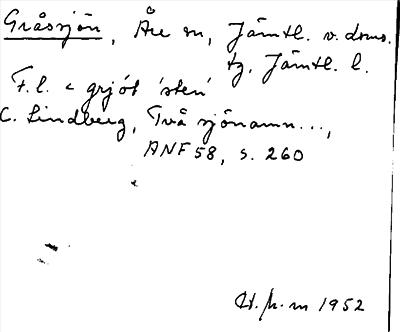 Gråsjön, Åre sn, Jämtl. v. doms.
tg, Jämtl. l.
F.l. < grjót 'sten'
C. Lindberg, Två sjönamn...,
ANF 58, s. 260
1952